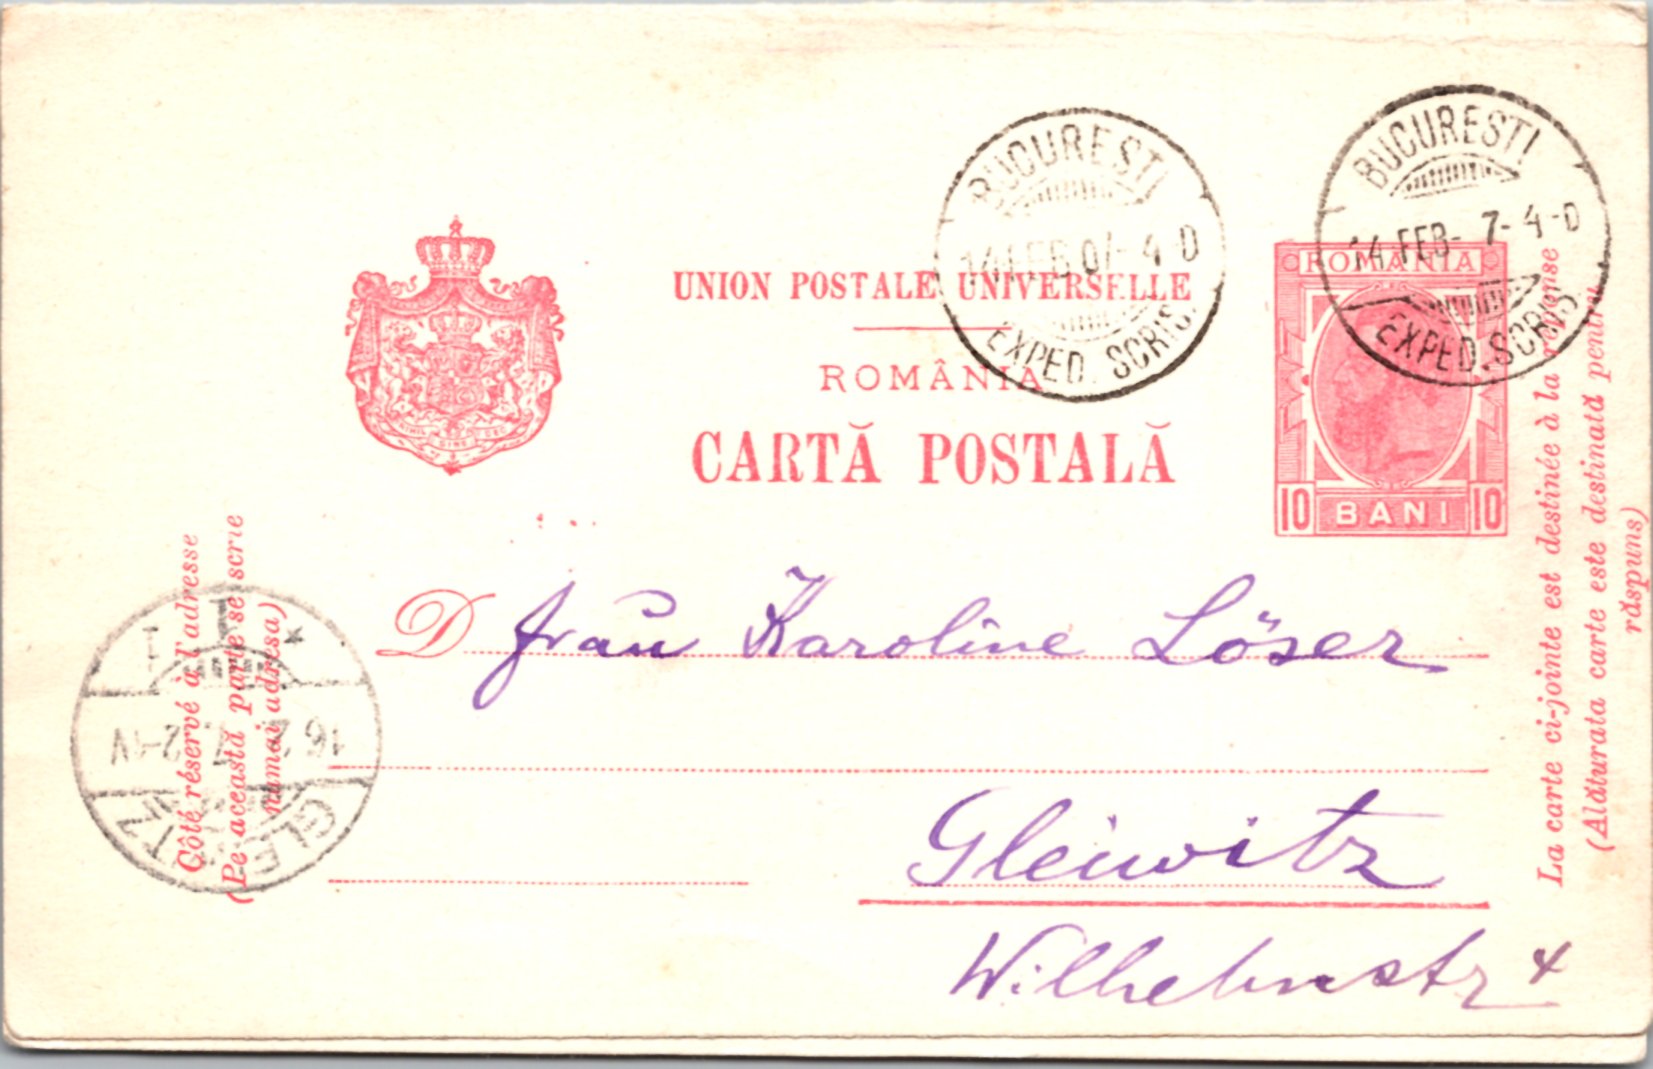 BUCURESTI
14 FEB 07- 4-D
EXPED. SCRIS.
BUCURESTI
14 FEB- 7-4-D
EXPED. SCRIS.
UNION POSTALE UNIVERSELLE
ROMÂNIA
CARTĂ POSTALĂ
ROMANIA
10 BANI 10
D Frau Karoline Löser
Gleiwitz
Wilhelmstr 4
Côté réservé à l'adresse
(Pe această parte se scrie
numai adresa)
La carte ci-jointe est destinée à la réponse
(Alăturata carte este destinată pentru
răspuns)
GLEIWITZ
16.2.7.2-1V
* 1
NIHIL SINE DEO